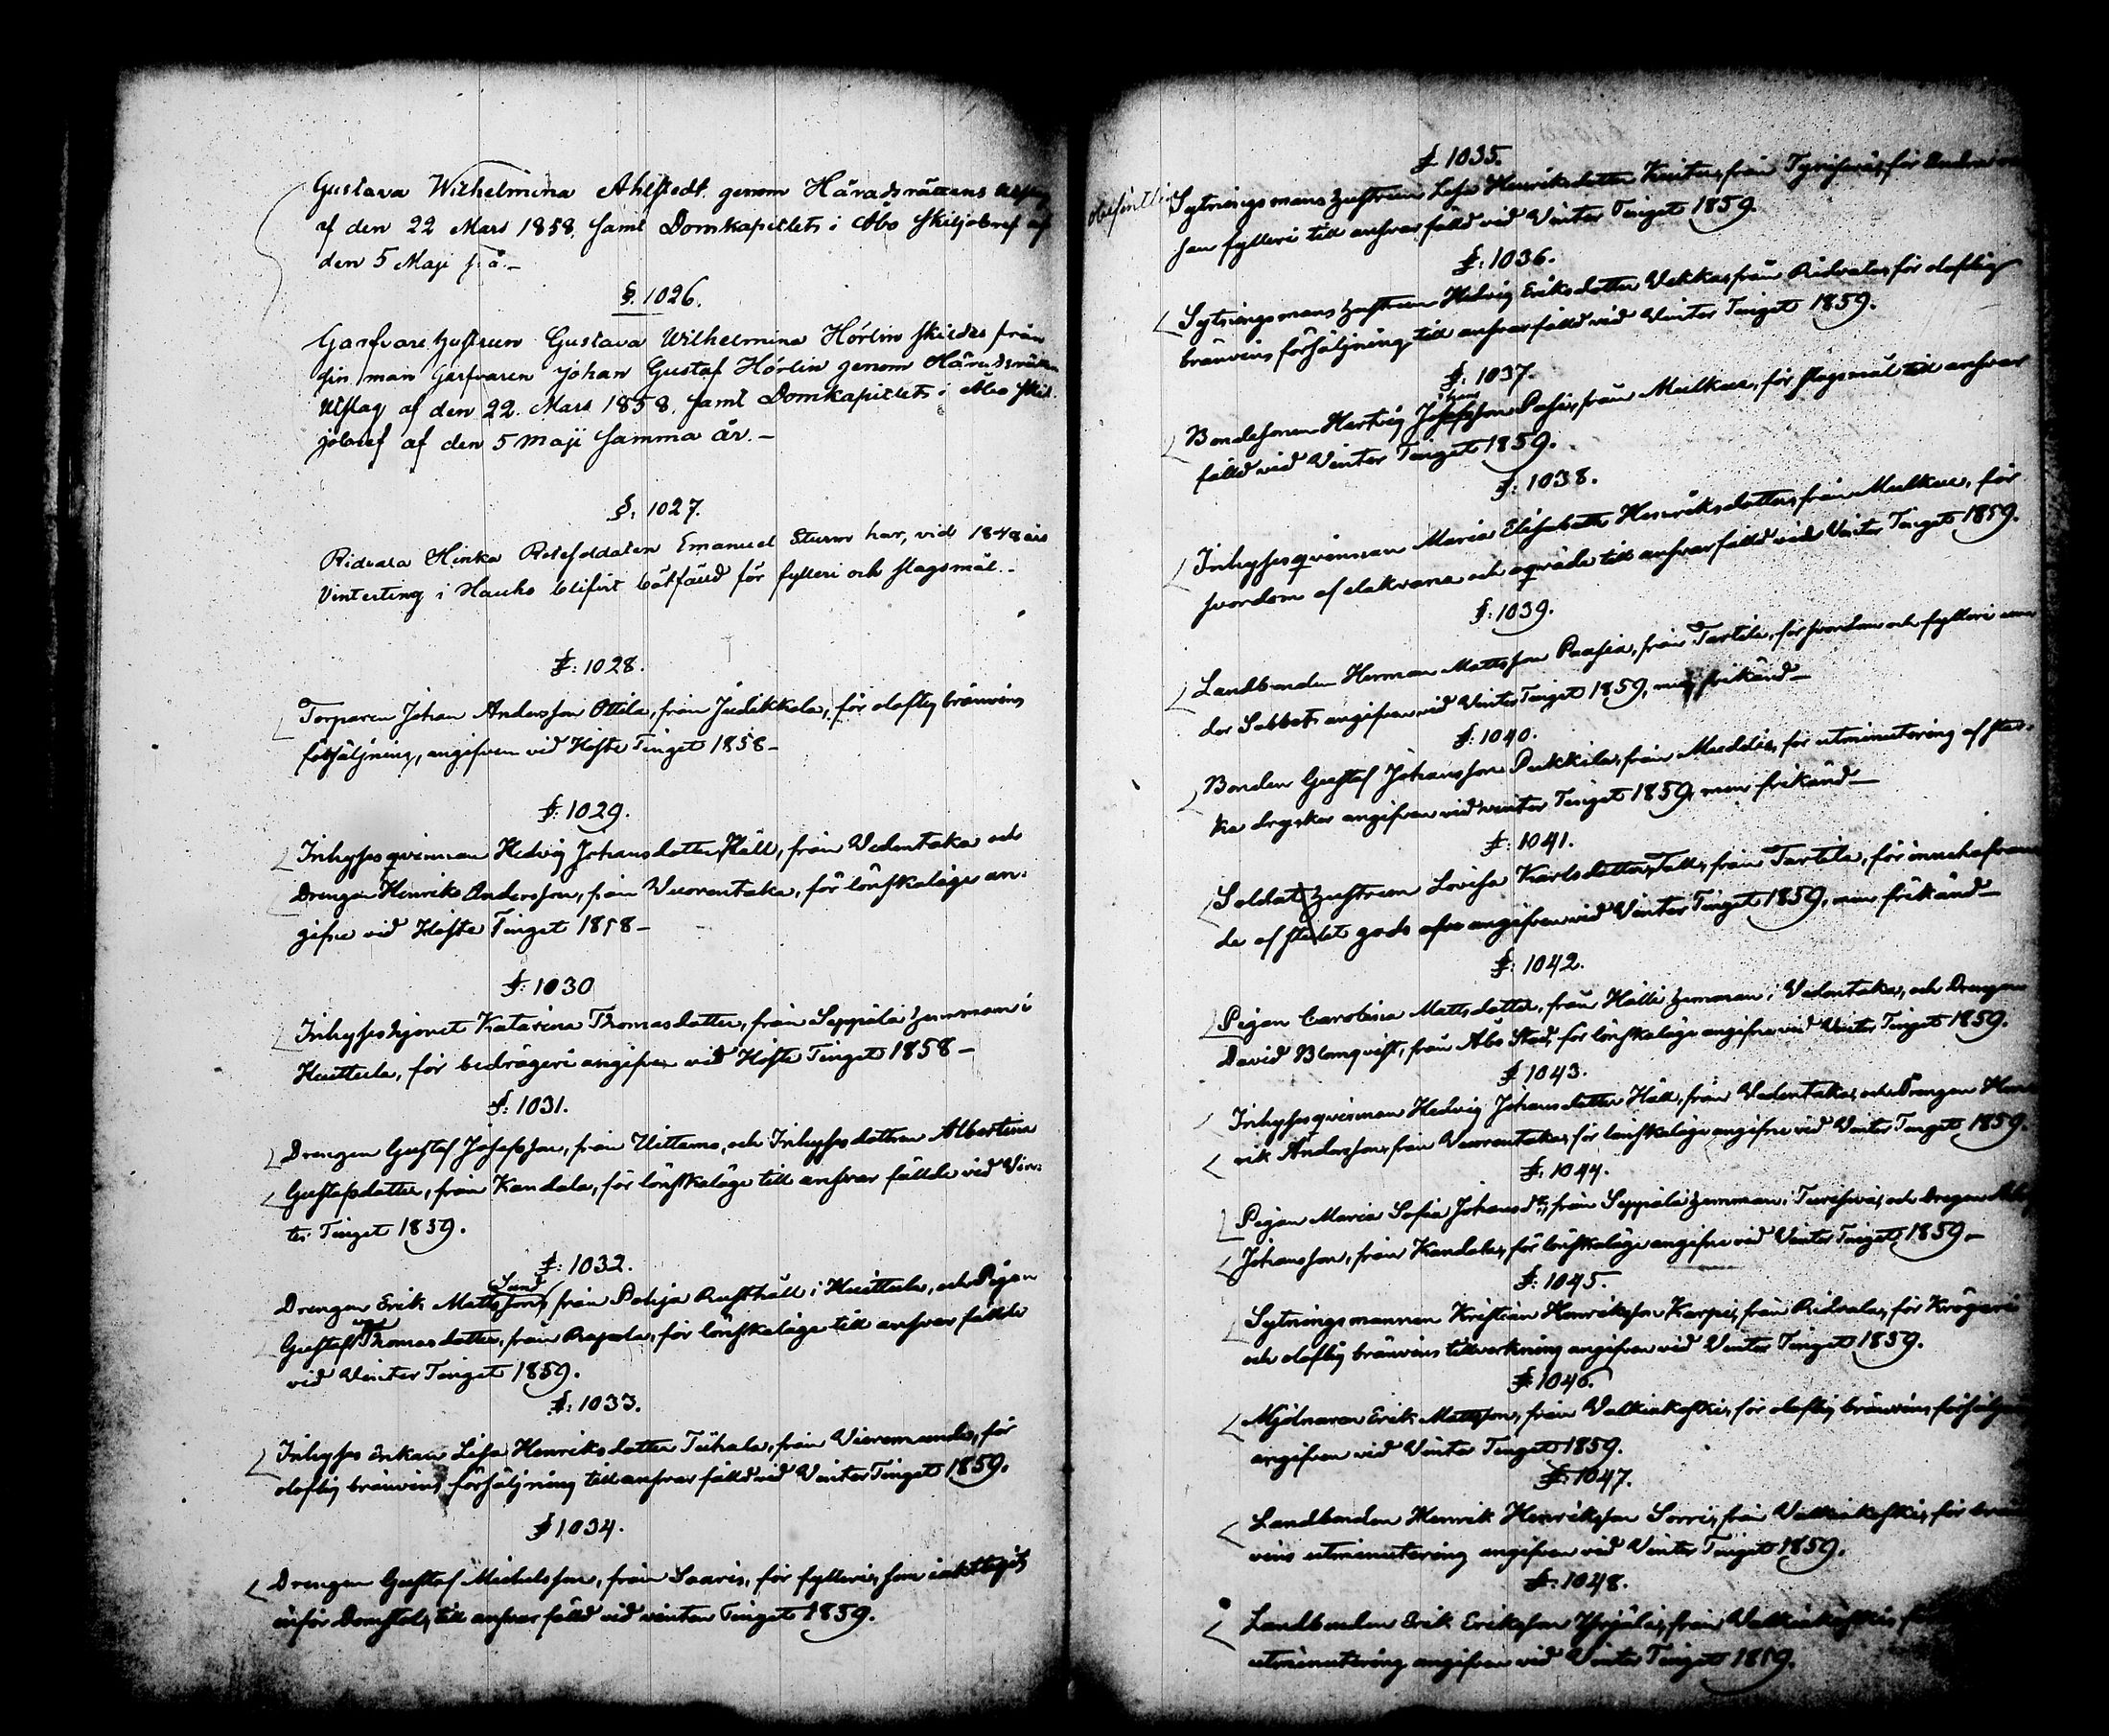 Gustava Wilhelmina Ahlstedt genom Häradsrättens utslag
af den 22 Mars 1858, samt Domkapitlets i Åbo skiljobref af
den 5 Maji s. å.-
§. 1026.
Garfvare hustrun Gustava Wilhelmina Hörlin skildes från
sin man Garfvaren Johan Gustaf Hörlin genom Häradsrättens
utslag af den 22. Mars 1858. samt Domkapitlets i Åbo skil-
jobref af den 5 Maji samma år.-
§. 1027.
Ridvala Hinka Rotesoldaten Emanuel Sturm har, vid 1848 års
Vinterting i Hauho blifvit botfälld för fylleri och slagsmål.-
§: 1028.
Torparen Johan Andersson Ottila, från Judikkala, för oloflig bränvins
försäljning, angifven vid Höste Tinget 1858-
§: 1029.
Inhysesqvinnan Hedvig Johansdotter Häll, från Vedentaka och
Drengen Henrik Andersson, från Vuorentaka, för lönskaläge an-
gifne vid Höste Tinget 1858-
§: 1030
Inhyseshjonet Katarina Thomasdotter, från Seppälä hemman i
Huittula, för bedrägeri angifven vid Höste Tinget 1858-
§: 1031.
Drengen Gustaf Josefsson, från Uittamo, och Inhysesdottren Albertina
Gustafsdotter, från Kandala, för lönskaläge till ansvar fällde vid Vin-
ter Tinget 1859.
§: 1032.
Drengen Erik Mattsson, från Pohja Rusthåll i Huittula, och Pigan
Gustafva Thomasdotter, från Rapola, för lönskaläge till ansvar fällde
vid Vinter Tinget 1859.
§: 1033.
Inhyses Enkan Lisa Henriksdotter Tuhala, från Vieremende, för
oloflig bränvins försäljning till ansvar fälld vid Vinter Tinget 1859.
§ 1034.
Drengen Gustaf Michelsson, från Saaris, för fylleri, som iakttagits
inför Domstol, till ansvar fälld vid vinter Tinget 1859.
§ 1035.
Sytningsmans hustrun Lisa Henriksdotter från för
san fylleri till ansvar fälld vid Vinter Tinget 1859.
§: 1036.
Sytningsmans hustrun Hedvig Eriksdotter Vekka, från Ridvala, för oloflig
bränvins försäljning till ansvar fälld vid Vinter Tinget 1859.
§: 1037.
Bondesonen Hertvig Pasi, från Mälkiä, för slagsmål till ansvar
fälld vid Vinter Tinget 1859.
§: 1038.
Inhysesqvinnan Maria Elisabeth Henriksdotter, från för
svordom af elak vana och oqväde till ansvar fälld vid Vinter Tinget 1859.
§: 1039.
Landbonden Herman Mattsson Paasia, från Tartila, för svordom och fylleri un-
der Sabbat, angifven vid Vinter Tinget 1859, men frikänd-
§: 1040.
Bonden Gustaf Johansson Pukkila, från för utminutering af star-
ka drycker angifven vid winter Tinget 1859, men frikänd-
§: 1041.
Soldat hustrun Lovisa Karlsdotter Tall, från Tartila, för innehafvan-
de af stulet gods angifven vid Vinter Tinget 1859, men frikänd-
§: 1042.
Pigan Carolina Mattsdotter, från Hälli hemman i Vedentaka, och Drengen
David Blomqvist, från Åbo Stad, för lönskaläge angifne vid Vinter Tinget 1859.
§ 1043.
Inhysesqvinnan Hedvig Johansdotter Häll, från Vedentaka, och Drengen Hen-
rik Andersson, från Vuorentaka, för lönskaläge angifne vid Vinter Tinget 1859.
§: 1044.
Pigan Maria Sofia Johansdr, från Seppälä hemman i och Drengen
Johansson, från Kandala, för lönskaläge angifne vid Vinter Tinget 1859-
§: 1045.
Sytningsmannen Kristian Henriksson Karpi, från Ridvala, för Krögeri
och oloflig bränvins tillverkning angifven vid Vinter Tinget 1859.
§: 1046.
Mjölnaren Erik Mattsson, från Valkiakoski, för oloflig bränvins försäljning
angifven vid Vinter Tinget 1859.
§: 1047.
Landbonden Henrik Henriksson Sorri, från Valkiakoski, för brän-
vins utminutering angifven vid Vinter Tinget 1859.
§: 1048.
Landbonden Erik Eriksson Yrjälä, från Valkiakoski,
utminutering angifven vid Vinter Tinget 1859.